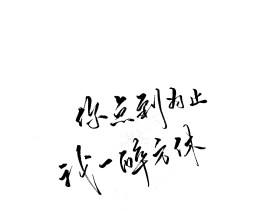 你点到为止
我一醉方休